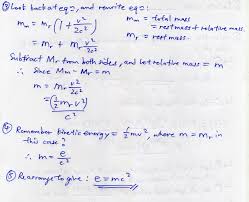 ③ Look back at eq 2, and rewrite eq 2:
mₘ = mᵣ (1 + v²/2c²)
mₘ = total mass
= rest mass + relative mass.
mᵣ = rest mass.
= mᵣ + mᵣ v²/2c²
Subtract Mr from both sides, and let relative mass = m
∴ Since Mm - Mr = m
m = mᵣ v²/2c²
= (½ mᵣ v²)/c²
④ Remember kinetic energy = ½ mv², where m = mᵣ in
this case?
∴ m = e/c²
⑤ Rearrange to give: e = mc²